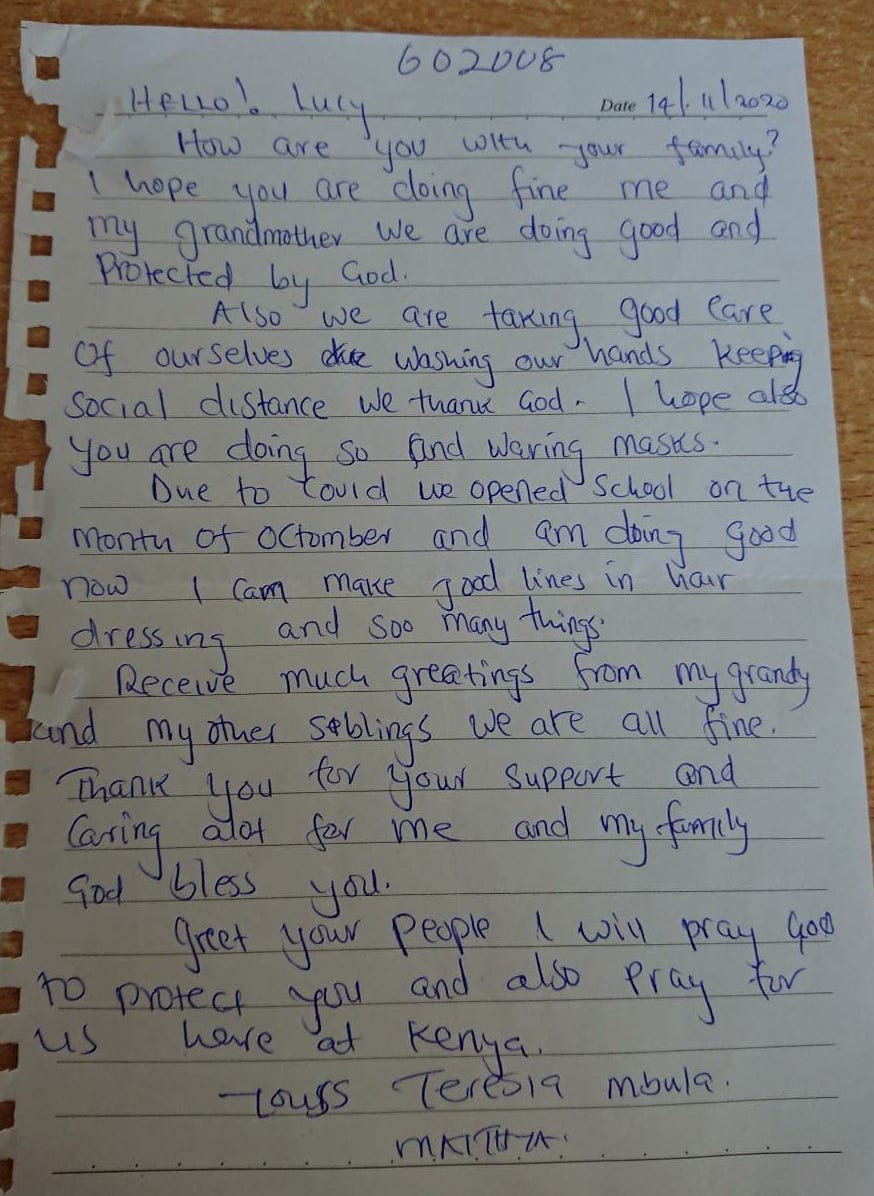 602008
Hello! Lucy Date 14/11/2020
How are you with your family?
I hope you are doing fine me and
my grandmother we are doing good and
Protected by God.
Also we are taking good care
Of ourselves washing our hands keeping
social distance we thank God. I hope also
you are doing so and waring masks.
Due to Covid we opened School on the
month of Octomber and am doing good
now I cam make good lines in hair
dressing and soo many things.
Receive much greatings from my grandy
and my other siblings we are all fine.
Thank you for your support and
Caring alot for me and my family
God bless you.
Greet your people I will pray God
to protect you and also pray for
us here at Kenya.
Teresia Mbula.